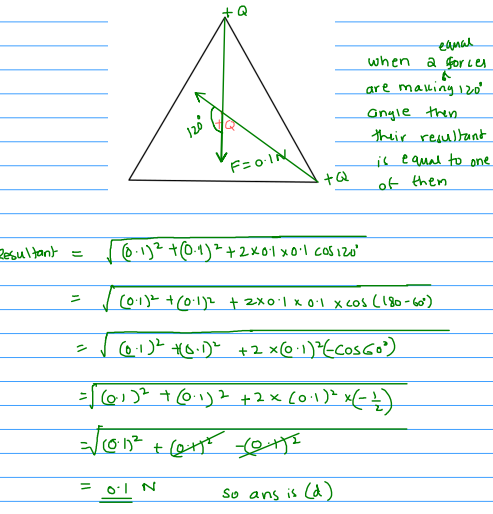 +Q
equal
when 2 forces
are making 120°
angle then
their resultant
is equal to one
of them
120°
+Q
F = 0.1N
+Q
Resultant = √(0.1)² + (0.1)² + 2×0.1×0.1 cos120°
= √(0.1)² + (0.1)² + 2×0.1×0.1×cos(180-60°)
= √(0.1)² + (0.1)² + 2×(0.1)²(-cos60°)
= √(0.1)² + (0.1)² + 2×(0.1)²×(-1/2)
= √(0.1)² + (0.1)² - (0.1)²
= 0.1 N so ans is (d)